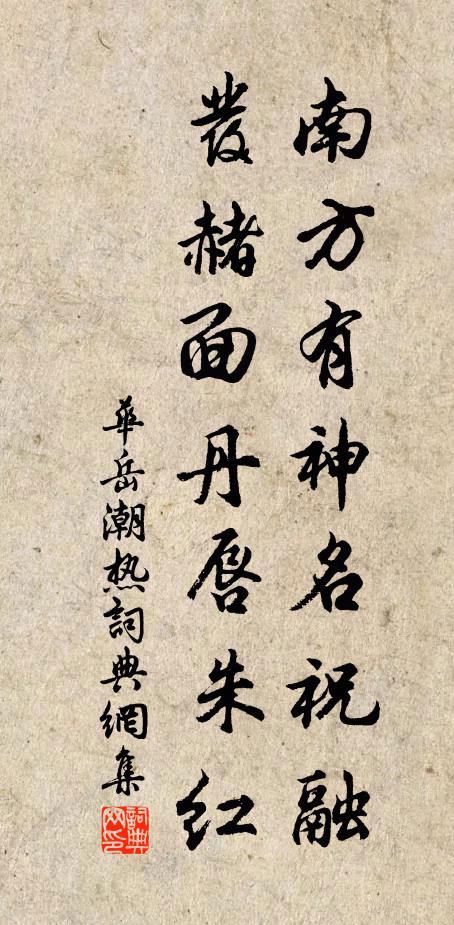 南方有神名祝融
發赭面丹唇朱紅
華岳潮热詞典網集
詞典网印